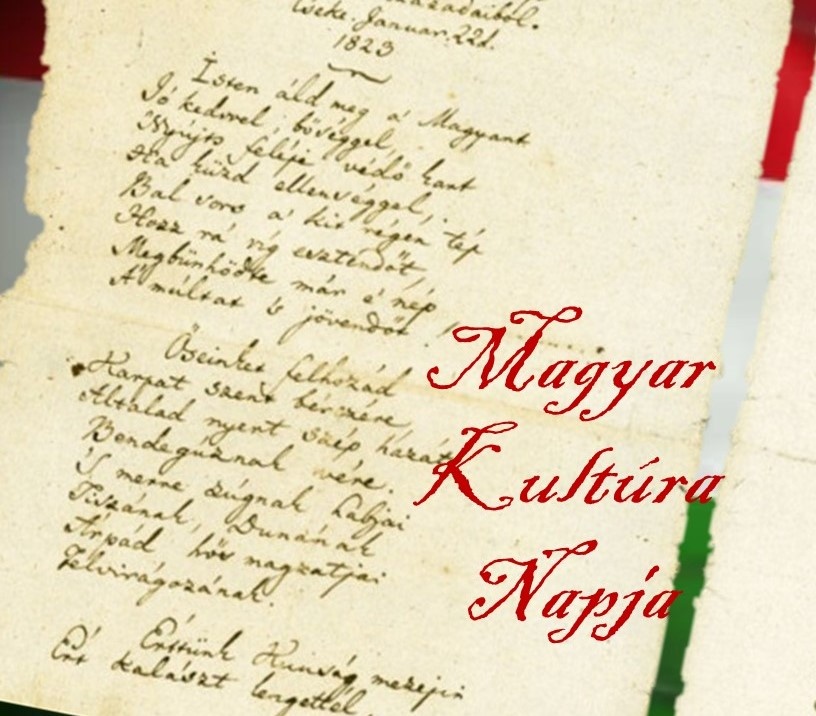 zadaiból.
Cseke. Januar. 22d.
1823
Isten áld meg a' Magyart
Jó kedvvel bőséggel,
Nyújts feléje védő kart
Ha küzd ellenséggel,
Bal sors a' kit régen tép
Hozz rá víg esztendőt,
Megbünhödte már e' nép
A' múltat 's jövendőt!
Őseinket felhozád
Kárpát szent bérczére,
Általad nyert szép hazát
Bendegúznak vére.
'S merre zúgnak habjai
Tiszának, Dunának
Árpád hős magzatjai
Felvirágozának.
Értünk Kunság mezejin
Ért kalászt lengettél.
Magyar
Kultúra
Napja